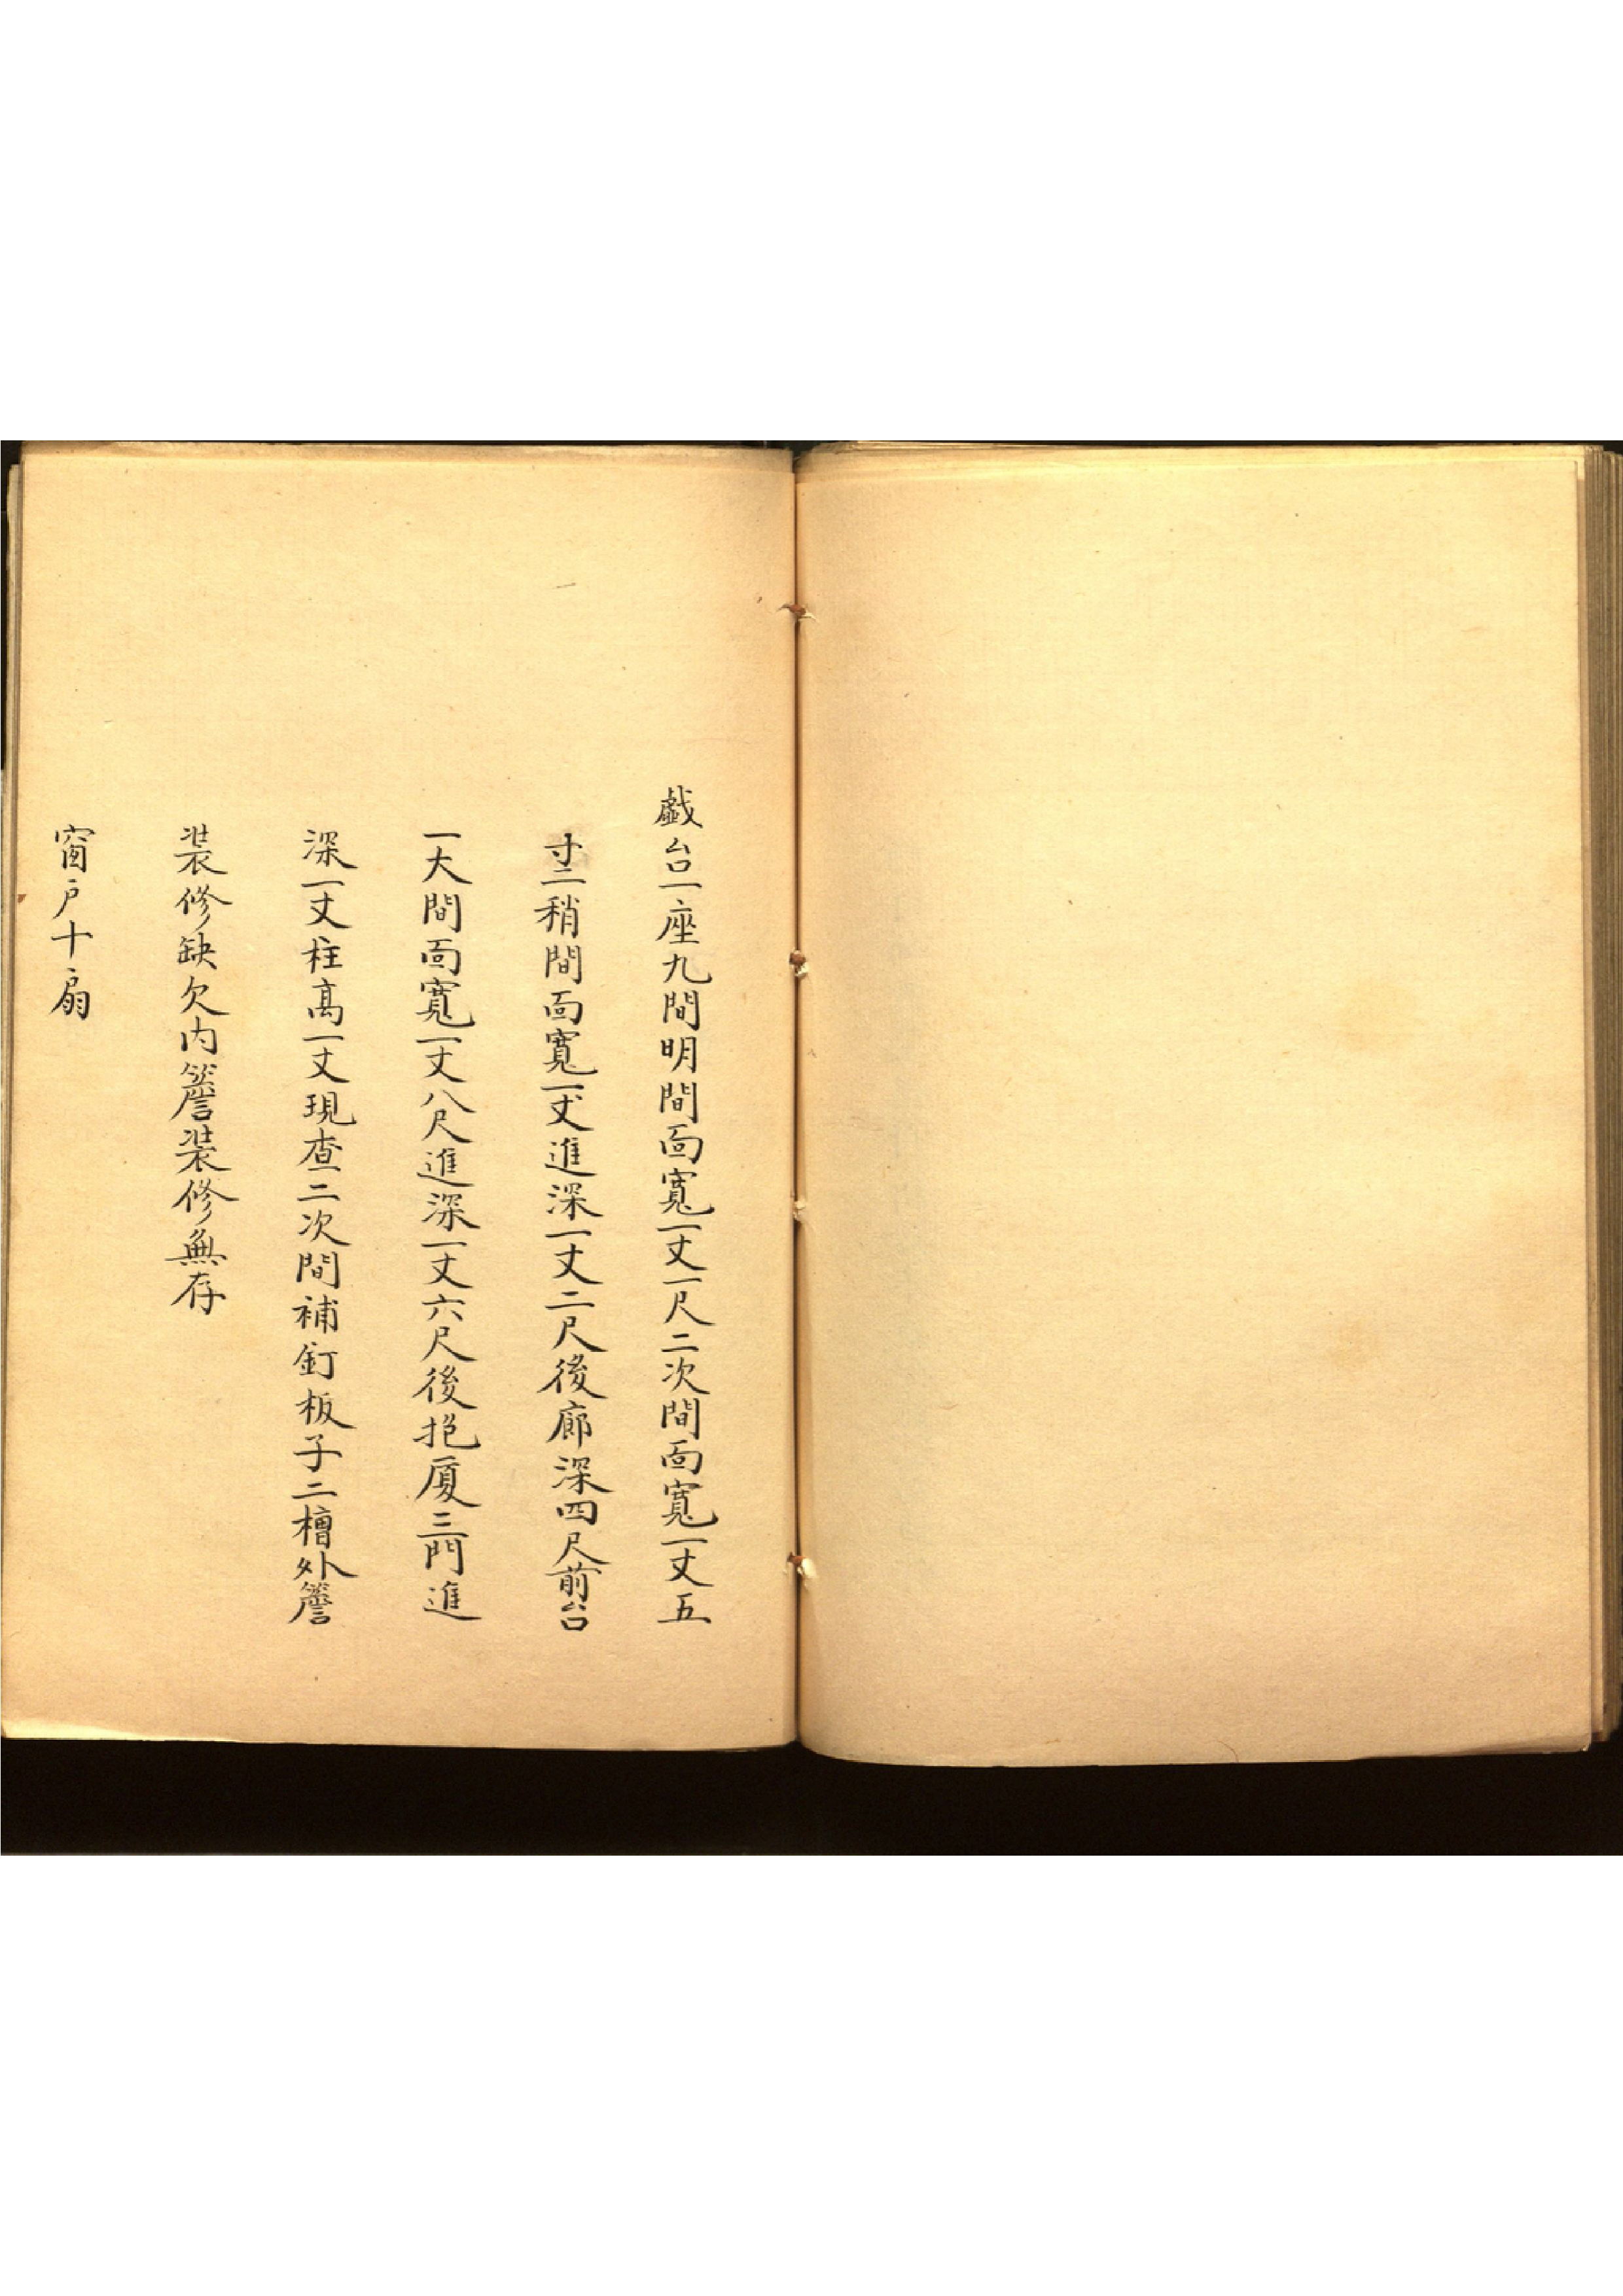 戯台一座九間明間面寬一丈一尺二次間面寬一丈五
寸二稍間面寬一丈進深一丈二尺後廊深四尺前台
一大間面寬一丈八尺進深一丈六尺後抱厦三門進
深一丈柱髙一丈現查二次間補釘板子二檜外簷
装修缺欠内簷装修無存
窗户十扇